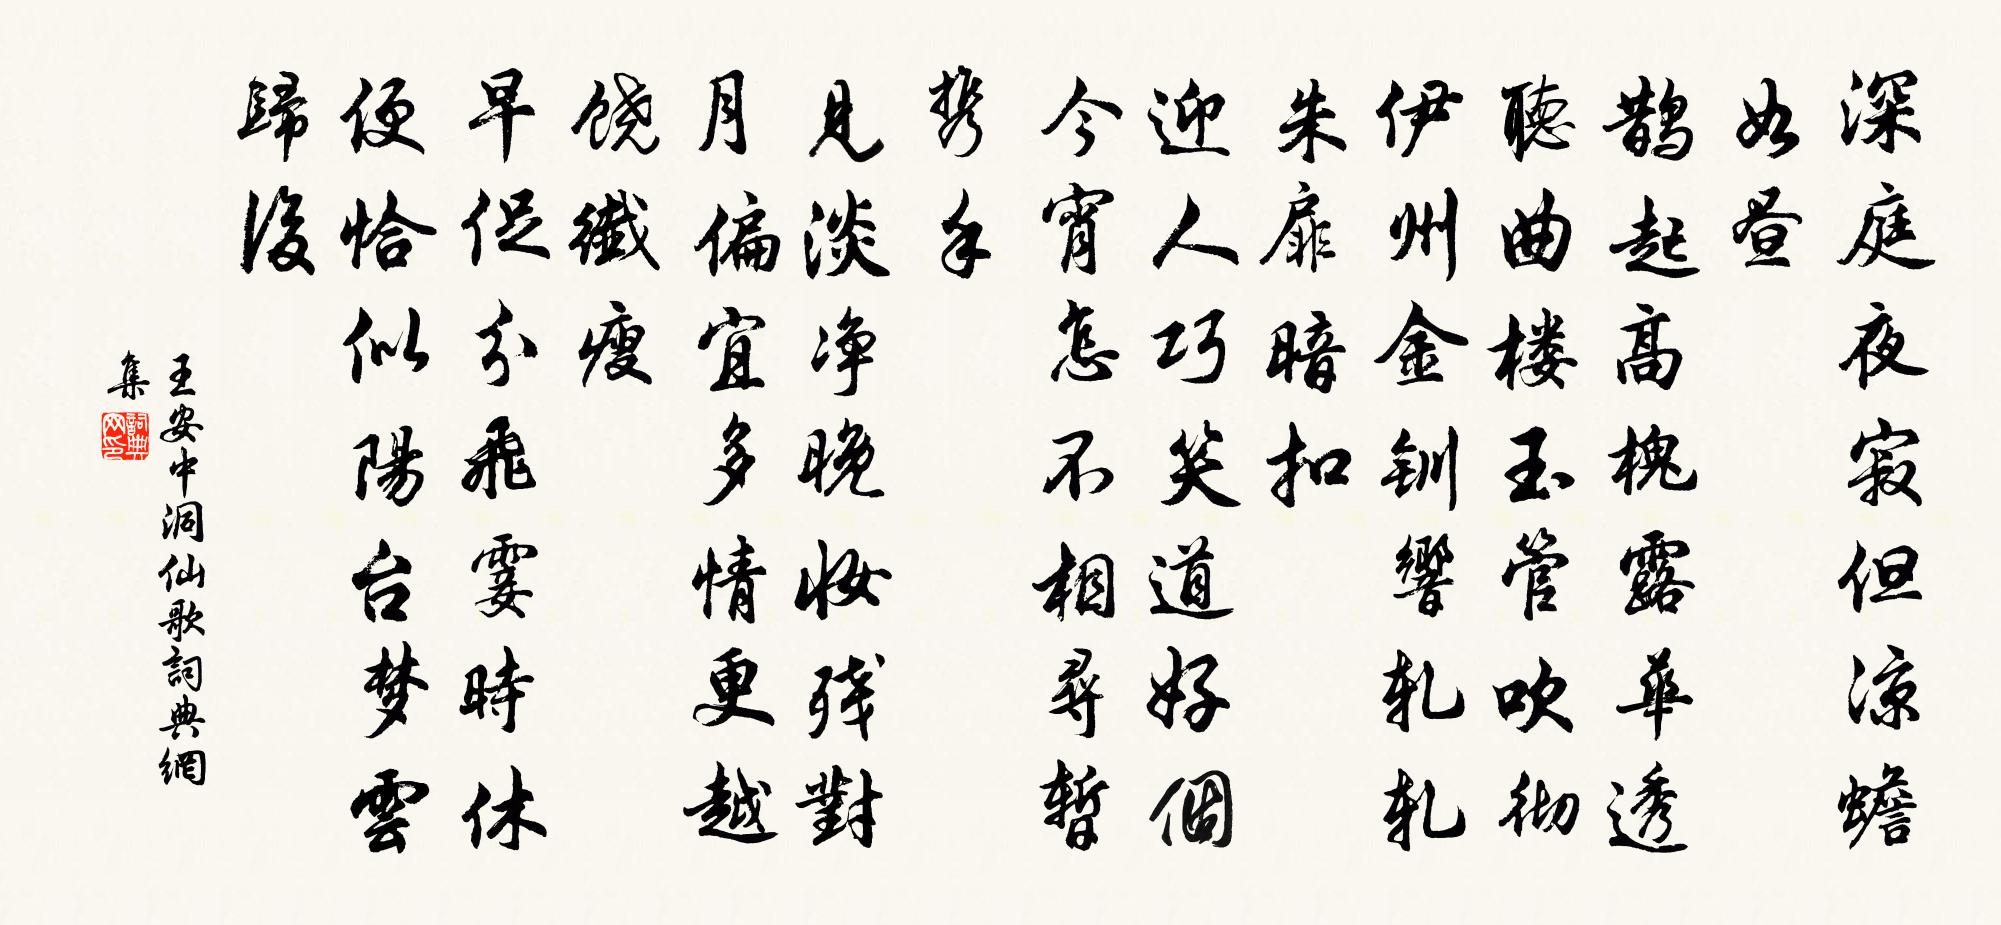 深庭夜寂但凉蟾
如昼
鹊起高槐露華透
聴曲楼玉管吹彻
伊州金钏響轧轧
朱扉暗扣
迎人巧笑道好個
今宵怎不相尋暫
携手
見淡净晚妝残對
月偏宜多情更越
饶纖瘦
早促分飛霎時休
便恰似陽台梦雲
歸後
王安中洞仙歌詞典網
集
詞典
网印